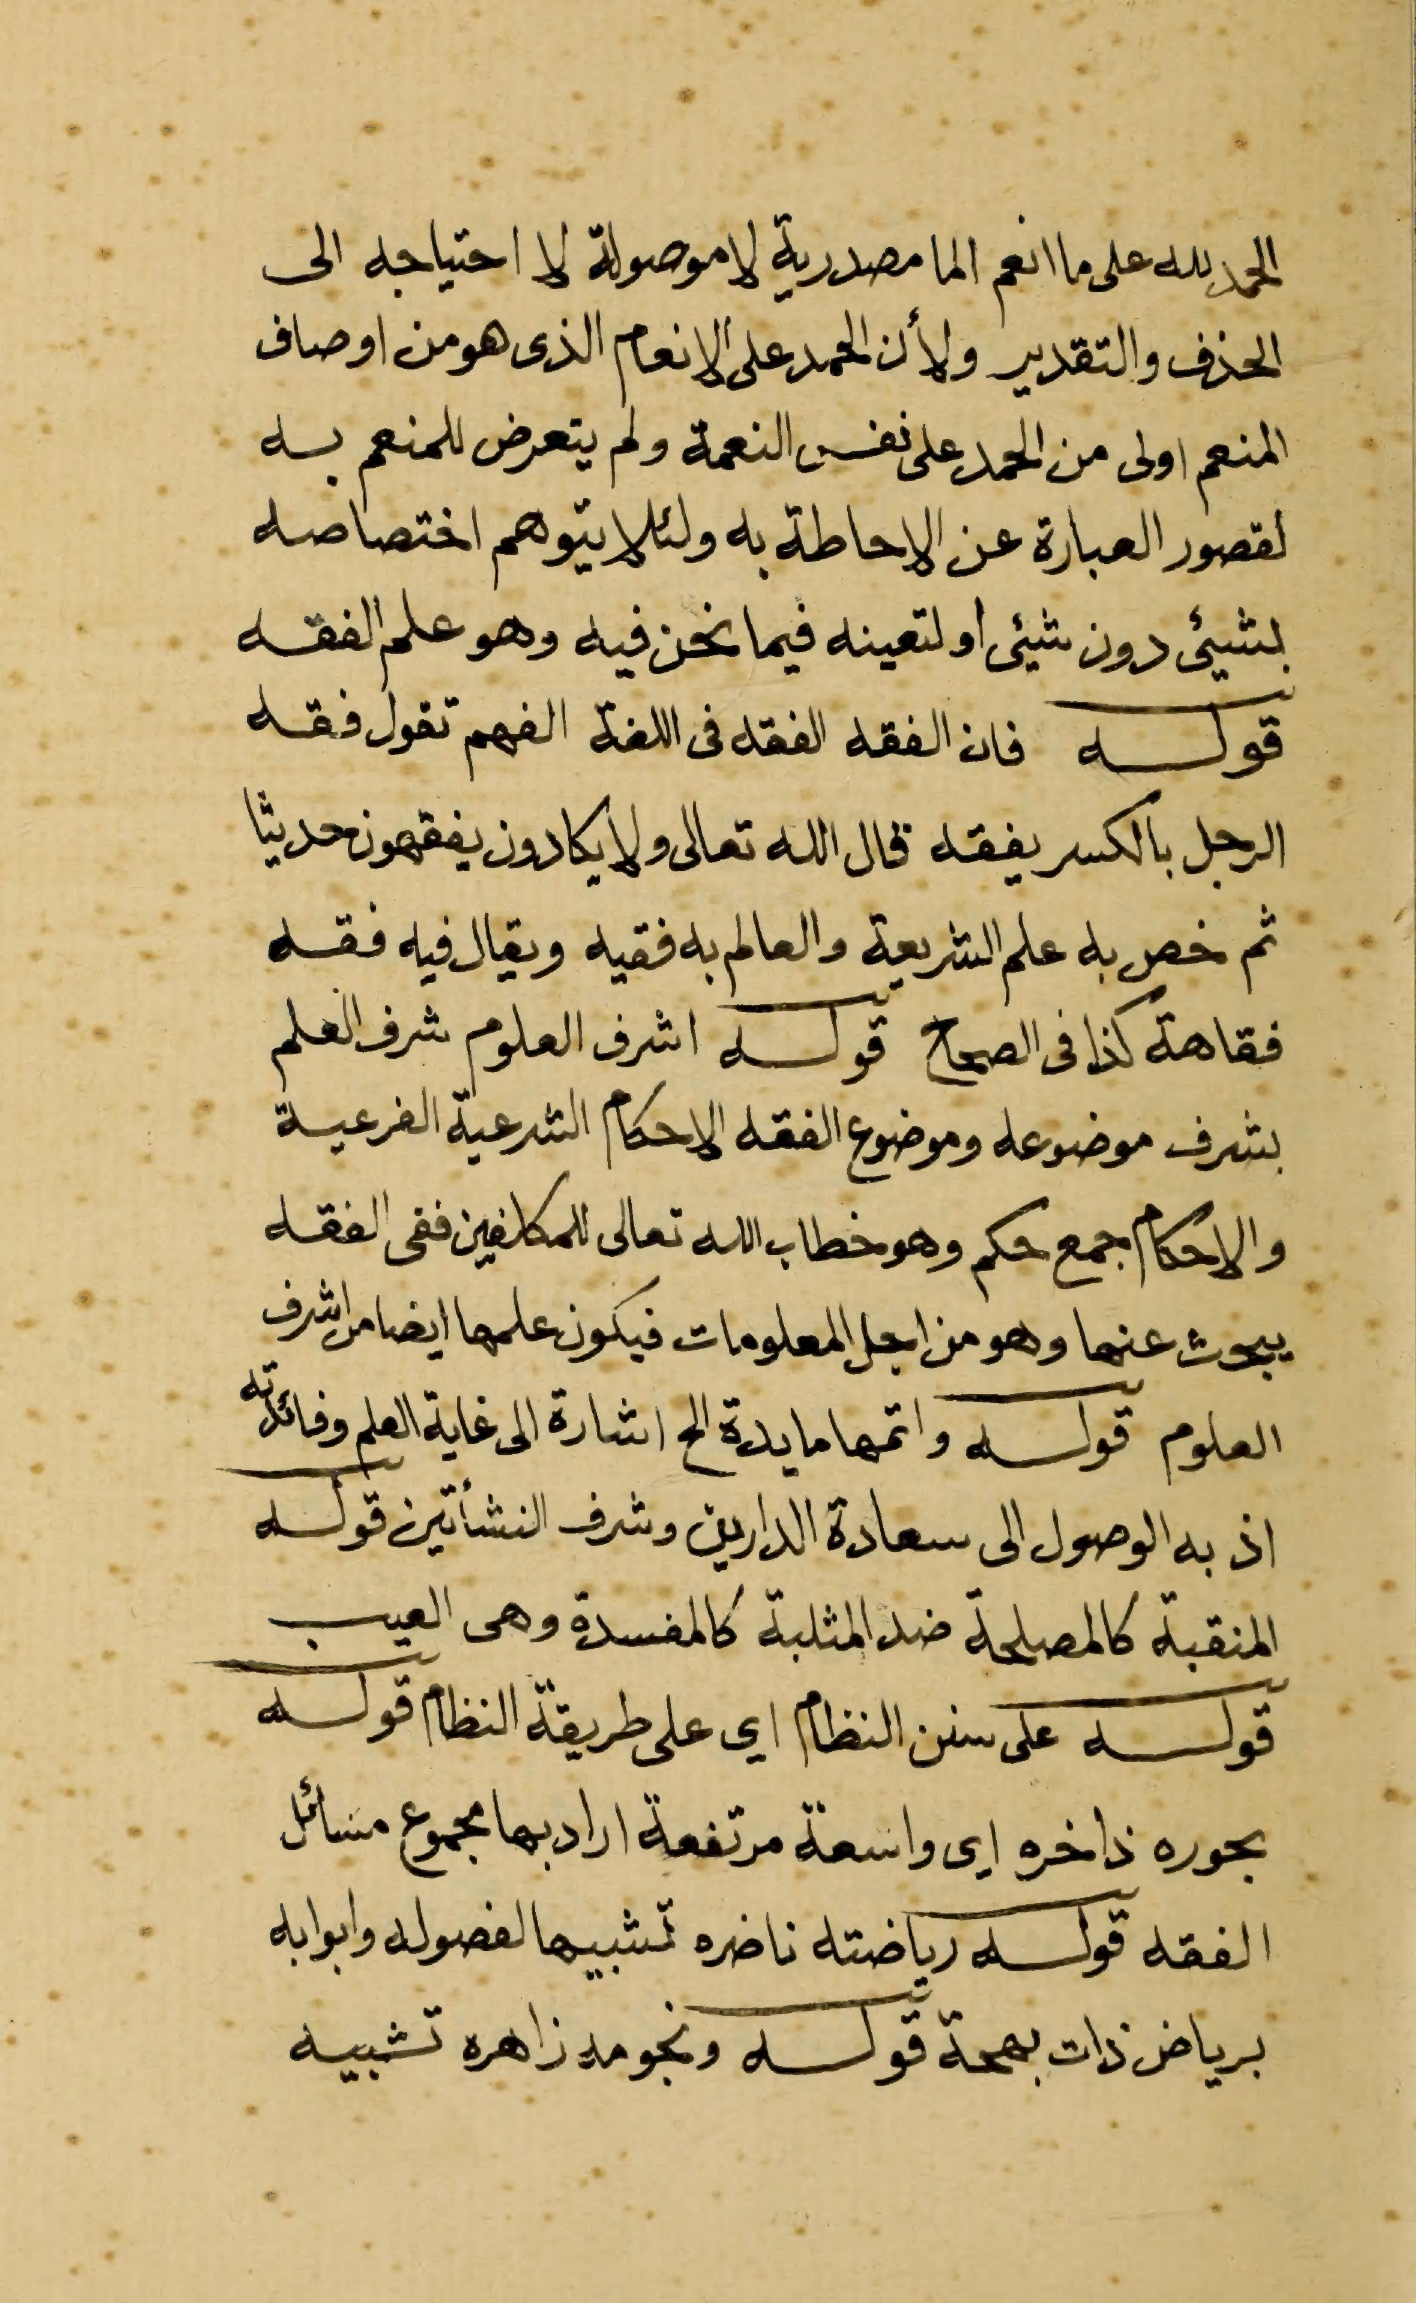 الحمد لله على ما انعم الما مصدرية لا موصولة لا احتياجه الى
الحذف والتقدير ولأن الحمد على الانعام الذى هو من اوصاف
المنعم اولى من الحمد على نفس النعمة ولم يتعرض للمنعم به
لقصور العبارة عن الاحاطة به ولئلا يتوهم اختصاصه
بشيئ دون شيئ او لتعينه فيما نحن فيه وهو علم الفقه
قوله فان الفقه الفقه فى اللغة الفهم تقول فقه
الرجل بالكسر يفقه قال الله تعالى ولا يكادون يفقهون حديثا
ثم خص به علم الشريعة والعالم به فقيه ويقال فيه فقه
فقاهة كذا فى الصحاح قوله اشرف العلوم شرف العلم
بشرف موضوعه وموضوع الفقه الاحكام الشرعية الفرعية
والاحكام جمع حكم وهو خطاب الله تعالى للمكلفين ففى الفقه
يبحوث عنها وهو من اجل المعلومات فيكون علمها ايضا من اشرف
العلوم قوله واتمها مايدة الح اشارة الى غاية العلم وفائدته
اذ به الوصول الى سعادة الدارين وشرف النشأتين قوله
المنقبة كالمصلحة ضد المثلبة كالمفسدة وهى العيب
قوله على سنن النظام اى على طريقة النظام قوله
بحوره ذاخره اى واسعة مرتفعة اراد بها مجموع مسائل
الفقه قوله رياضته ناضره تشبيها لفصوله وابوابه
برياض ذات بهجة قوله ونجومه زاهره تشبيه